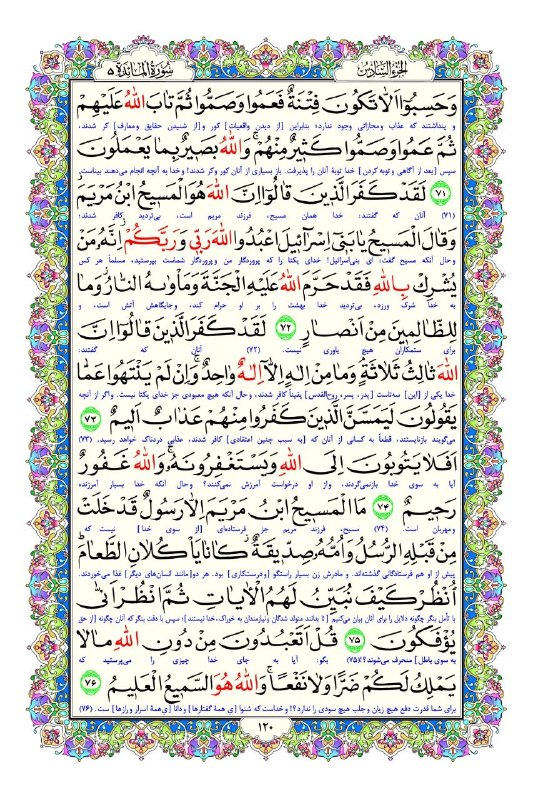 الجزء السادس
سورة المائدة ۵
وَحَسِبُوٓا اَلّا تَكُونَ فِتنَةٌ فَعَموا وَصَمّوا ثُمَّ تابَ اللهُ عَلَيهِم
و پنداشتند که عذاب ومجازاتی وجود ندارد؛ بنابراین [از دیدن واقعیات] کور و [از شنیدن حقایق ومعارف] کر شدند،
ثُمَّ عَموا وَصَمّوا كَثيرٌ مِنهُم وَاللهُ بَصيرٌ بِما يَعمَلونَ
سپس [بعد از آگاهی و توبه کردن] خدا توبهٔ آنان را پذیرفت. باز بسیاری از آنان کور وکر شدند! وخدا به آنچه انجام می‌دهند بیناست.
۷۱ لَقَد كَفَرَ الَّذينَ قالوٓا اِنَّ اللهَ هُوَ المَسيحُ ابنُ مَريَمَ
(۷۱) آنان که گفتند: خدا همان مسیح، فرزند مریم است، بی‌تردید کافر شدند؛
وَقالَ المَسيحُ يا بَنىٓ اِسرآئيلَ اعبُدُوا اللهَ رَبّى وَرَبَّكُم اِنَّهُ مَن
وحال آنکه مسیح گفت: ای بنی‌اسرائیل! خدای یکتا را که پروردگار من وپروردگار شماست بپرستید، مسلماً هر کس
يُشرِك بِاللهِ فَقَد حَرَّمَ اللهُ عَلَيهِ الجَنَّةَ وَمَأوٰىهُ النّارُ وَما
به خدا شرک ورزد، بی‌تردید خدا بهشت را بر او حرام کند، وجایگاهش آتش است، و
لِلظّالِمينَ مِن اَنصارٍ ۷۲ لَقَد كَفَرَ الَّذينَ قالوٓا اِنَّ
برای ستمکاران هیچ یاوری نیست. (۷۲) آنان که گفتند:
اللهَ ثالِثُ ثَلاثَةٍ وَما مِن اِلٰهٍ اِلّآ اِلٰهٌ واحِدٌ وَاِن لَم يَنتَهوا عَمّا
خدا یکی از [این] سه‌تاست [پدر، پسر، روح‌القدس] یقیناً کافر شدند، وحال آنکه هیچ معبودی جز خدای یکتا نیست. واگر از آنچه
يَقولونَ لَيَمَسَّنَّ الَّذينَ كَفَروا مِنهُم عَذابٌ اَليمٌ ۷۳
می‌گویند بازنایستند، قطعاً به کسانی از آنان که [به سبب چنین اعتقادی] کافر شدند، عذابی دردناک خواهد رسید. (۷۳)
اَفَلا يَتوبونَ اِلَى اللهِ وَيَستَغفِرونَهُ وَاللهُ غَفورٌ
آیا به سوی خدا بازنمی‌گردند، واز او درخواست آمرزش نمی‌کنند؟ وحال آنکه خدا بسیار آمرزنده
رَحيمٌ ۷۴ مَا المَسيحُ ابنُ مَريَمَ اِلّا رَسولٌ قَد خَلَت
ومهربان است. (۷۴) مسیح، فرزند مریم جز فرستاده‌ای [از سوی خدا] نیست که
مِن قَبلِهِ الرُّسُلُ وَاُمُّهُ صِدّيقَةٌ كانا يَأكُلانِ الطَّعامَ
پیش از او هم فرستادگانی گذشته‌اند. و مادرش زن بسیار راستگو [ودرست‌کاری] بود. هر دو [مانند انسان‌های دیگر] غذا می‌خوردند.
اُنظُر كَيفَ نُبَيِّنُ لَهُمُ الآياتِ ثُمَّ انظُر اَنّىٰ
با تأمل بنگر چگونه دلایل را برای آنان بیان می‌کنیم [تا بدانند متولد شدگان ونیازمندان به خوراک، خدا نیستند]؛ سپس با دقت بنگر که آنان چگونه [از حق
يُؤفَكونَ ۷۵ قُل اَتَعبُدونَ مِن دونِ اللهِ ما لا
به سوی باطل] منحرف می‌شوند؟!(۷۵) بگو: آیا به جای خدا چیزی را می‌پرستید که
يَملِكُ لَكُم ضَرًّا وَلا نَفعًا وَاللهُ هُوَ السَّميعُ العَليمُ ۷۶
برای شما قدرت دفع هیچ زیان وجلب هیچ سودی را ندارد؟! وخداست که شنوا [ی همهٔ گفتارها] ودانا [ی همهٔ اسرار ورازها] ست. (۷۶)
۱۲۰